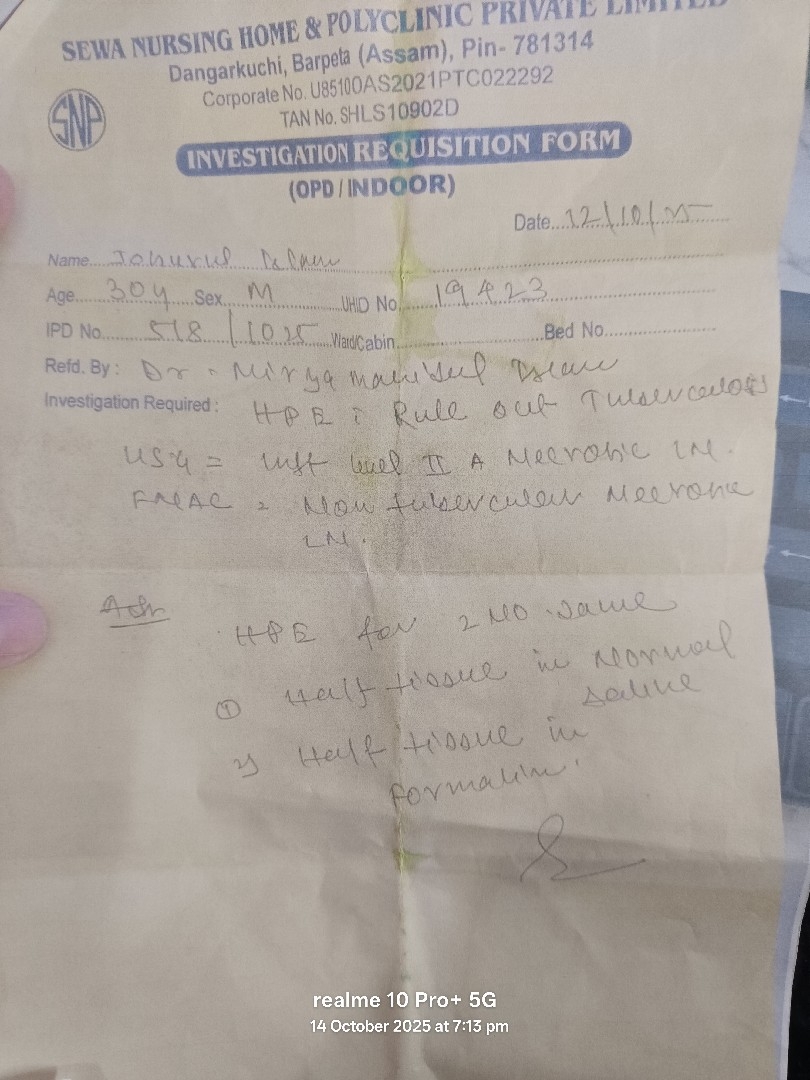 SEWA NURSING HOME & POLYCLINIC PRIVATE LIMITED
Dangarkuchi, Barpeta (Assam), Pin- 781314
Corporate No. U85100AS2021PTC022292
TAN No. SHLS10902D
SNP
INVESTIGATION REQUISITION FORM
(OPD / INDOOR)
Date...12/10/25
Name...Johurul Islam
Age...30y...Sex...M...UHID No...19423
IPD No...518/1025...Ward/Cabin...Bed No...
Refd. By : Dr. Islam
Investigation Required : HPE : Rule out Tuberculosis
USG = left level II A Necrotic LN.
FNAC = Non tubercular Necrotic
LN.
Adv
HPE for 2 NO same
① Half tissue in Normal
saline
2) Half tissue in
Formalin.
realme 10 Pro+ 5G
14 October 2025 at 7:13 pm